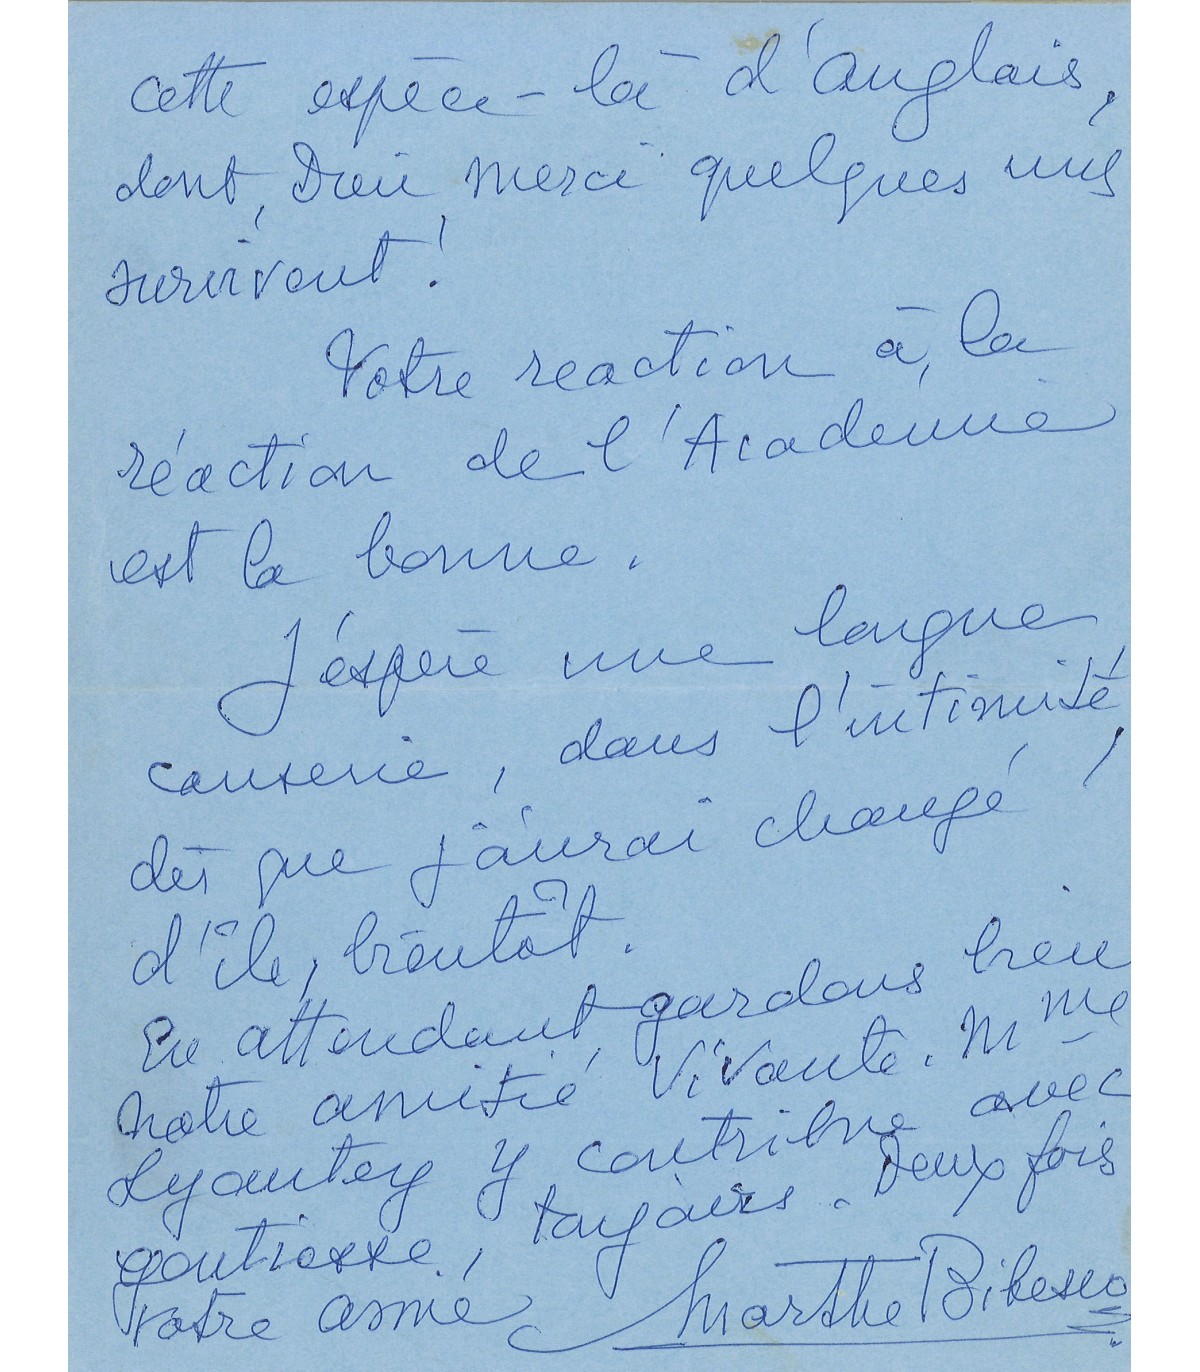 cette espèce-là d'anglais,
dont, Dieu merci quelques uns
survivent!
Votre reaction à, la
réaction de l'Académie
est la bonne.
J'éspère une longue
causerie, dans l'intimité,
dès que j'aurai changé
d'île, bientôt.
En attendant, gardons bien
notre amitié vivante. Mme
Lyautey y contribue avec
gentiesse, toujours. Deux fois
votre amie
Marthe Bibesco